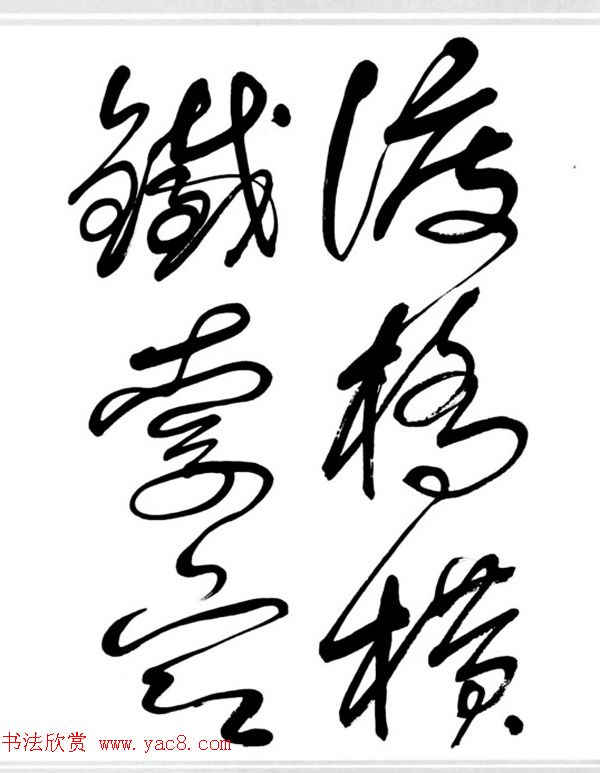 渡橋橫
鐵索寒
书法欣赏 www.yac8.com